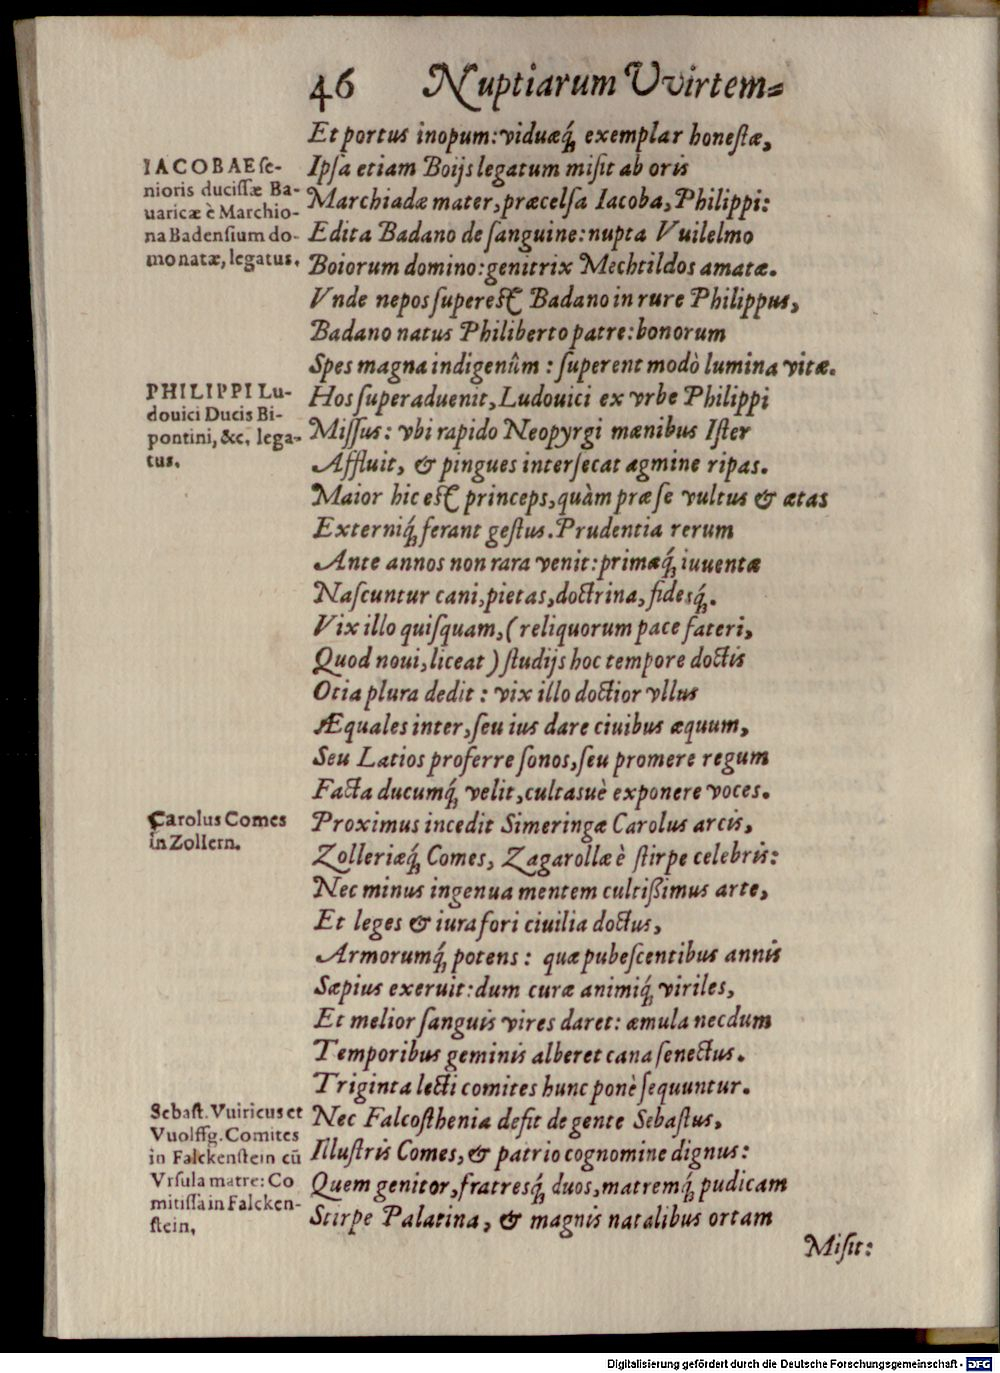 46 Nuptiarum Vvirtem=
Et portus inopum: viduæq́; exemplar honeſtæ,
IACOBAE ſe-
nioris duciſſæ Ba-
uaricæ è Marchio-
na Badenſium do-
mo natæ, legatus.
Ipſa etiam Boijs legatum miſit ab oris
Marchiadæ mater, præcelſa Iacoba, Philippi:
Edita Badano de ſanguine: nupta Vuilelmo
Boiorum domino: genitrix Mechtildos amatæ.
Vnde nepos ſupereſt Badano in rure Philippus,
Badano natus Philiberto patre: bonorum
Spes magna indigenûm: ſuperent modò lumina vitæ.
PHILIPPI Lu-
douici Ducis Bi-
pontini, &c. lega-
tus.
Hos ſuperaduenit, Ludouici ex vrbe Philippi
Miſſus: vbi rapido Neopyrgi mænibus Iſter
Affluit, & pingues interſecat agmine ripas.
Maior hic eſt princeps, quàm præ ſe vultus & ætas
Externiq́; ferant geſtus. Prudentia rerum
Ante annos non rara venit: primæq́; iuuentæ
Naſcuntur cani, pietas, doctrina, fidesq́;.
Vix illo quiſquam, (reliquorum pace fateri,
Quod noui, liceat) ſtudijs hoc tempore doctis
Otia plura dedit: vix illo doctior vllus
Æquales inter, ſeu ius dare ciuibus æquum,
Seu Latios proferre ſonos, ſeu promere regum
Facta ducumq́; velit, cultasuè exponere voces.
Carolus Comes
in Zollern.
Proximus incedit Simeringæ Carolus arcis,
Zolleriæq́; Comes, Zagarollæ è ſtirpe celebris:
Nec minus ingenua mentem cultiſsimus arte,
Et leges & iura fori ciuilia doctus,
Armorumq́; potens: quæ pubeſcentibus annis
Sæpius exeruit: dum curæ animiq́; viriles,
Et melior ſanguis vires daret: æmula necdum
Temporibus geminis alberet cana ſenectus.
Triginta lecti comites hunc ponè ſequuntur.
Sebaſt. Vuiricus et
Vuolffg. Comites
in Falckenſtein cū
Vrſula matre: Co
mitiſſa in Falcken-
ſtein,
Nec Falcoſthenia defit de gente Sebaſtus,
Illuſtris Comes, & patrio cognomine dignus:
Quem genitor, fratresq́; duos, matremq́; pudicam
Stirpe Palatina, & magnis natalibus ortam
Miſit:
Digitalisierung gefördert durch die Deutsche Forschungsgemeinschaft - DFG